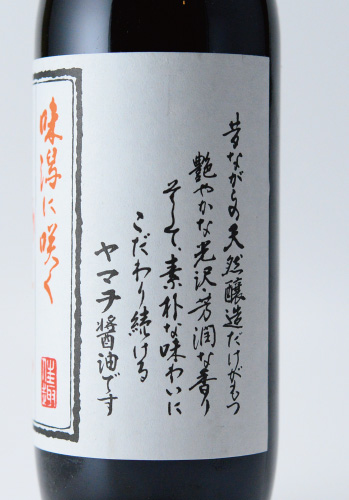 昔ながらの天然醸造だけがもつ
艶やかな光沢、芳潤な香り
そして、素朴な味わいに
こだわり続ける
ヤマヲ醤油です
味潟に咲く